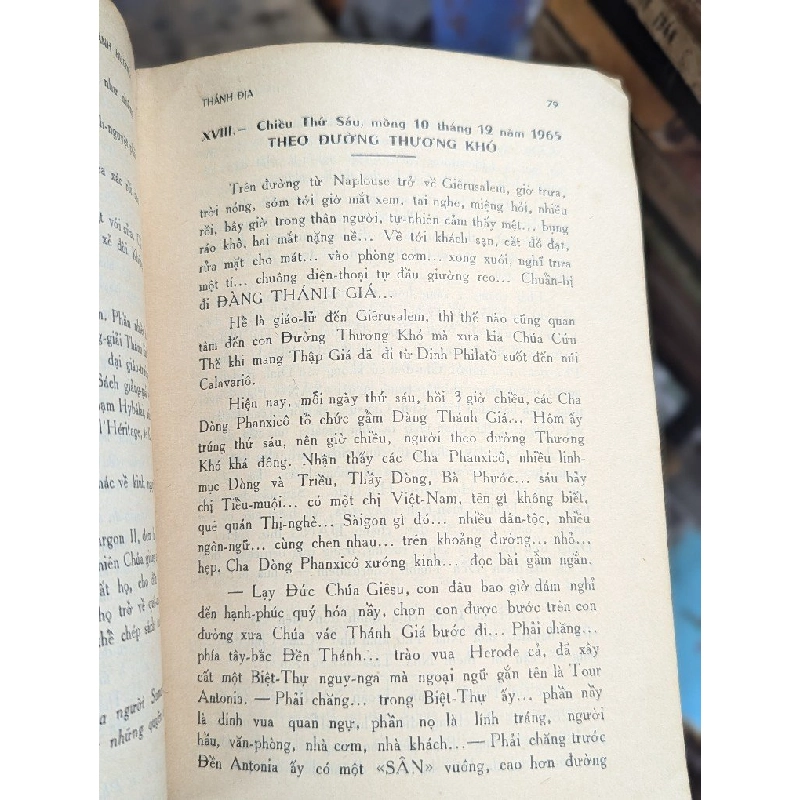 THÁNH ĐỊA 79
XVIII.— Chiều Thứ Sáu, mồng 10 tháng 12 năm 1965
THEO ĐƯỜNG THƯƠNG KHÓ
Trên đường từ Naplouse trở về Giêrusalem, giờ trưa,
trời nóng, sớm tới giờ mắt xem, tai nghe, miệng hỏi, nhiều
rồi, bấy giờ trong thân người, tự-nhiên cảm thấy mệt... bụng
ráo khô, hai mắt nặng nề... Về tới khách sạn, cất đồ đạt,
rửa mặt cho mát... vào phòng cơm... xong xuôi, nghĩ trưa
một tí... chuông điện-thoại tự đầu giường reo... Chuẩn-bị
đi ĐÀNG THÁNH GIÁ...
Hễ là giáo-lử đến Giêrusalem, thì thế nào cũng quan
tâm đến con Đường Thương Khó mà xưa kia Chúa Cứu
Thế khi mang Thập Giá đã đi từ Dinh Philatô suốt đến núi
Calavariô.
Hiện nay, mỗi ngày thứ sáu, hồi 3 giờ chiều, các Cha
Dòng Phanxicô tổ chức gẫm Đàng Thánh Giá... Hôm ấy
trúng thứ sáu, nên giờ chiều, người theo đường Thương
Khó khá đông. Nhận thấy các Cha Phanxicô, nhiều linh-
mục Dòng và Triều, Thầy Dòng, Bà Phước... sáu bảy
chị Tiểu-muội... có một chị Việt-Nam, tên gì không biết,
quê quán Thị-nghè... Sàigon gì đó... nhiều dân-tộc, nhiều
ngôn-ngữ... cùng chen nhau... trên khoảng đường... nhỏ...
hẹp, Cha Dòng Phanxicô xướng kinh... đọc bài gẫm ngắn.
— Lạy Đức Chúa Giêsu, con đâu bao giờ dám nghĩ
đến hạnh-phúc quý hóa nầy, chọn con được bước trên con
đường xưa Chúa vác Thánh Giá bước đi... Phải chăng...
phía tây-bắc Đền Thánh... trào vua Herode cả, đã xây
cất một Biệt-Thự nguy-nga mà ngoại ngữ gắn tên là Tour
Antonia. — Phải chăng... trong Biệt-Thự ấy... phần nầy
là dinh vua quan ngự, phần nọ là lính tráng, người
hầu, văn-phòng, nhà cơm, nhà khách...— Phải chăng trước
Đền Antonia ấy có một «SÂN» vuông, cao hơn đường